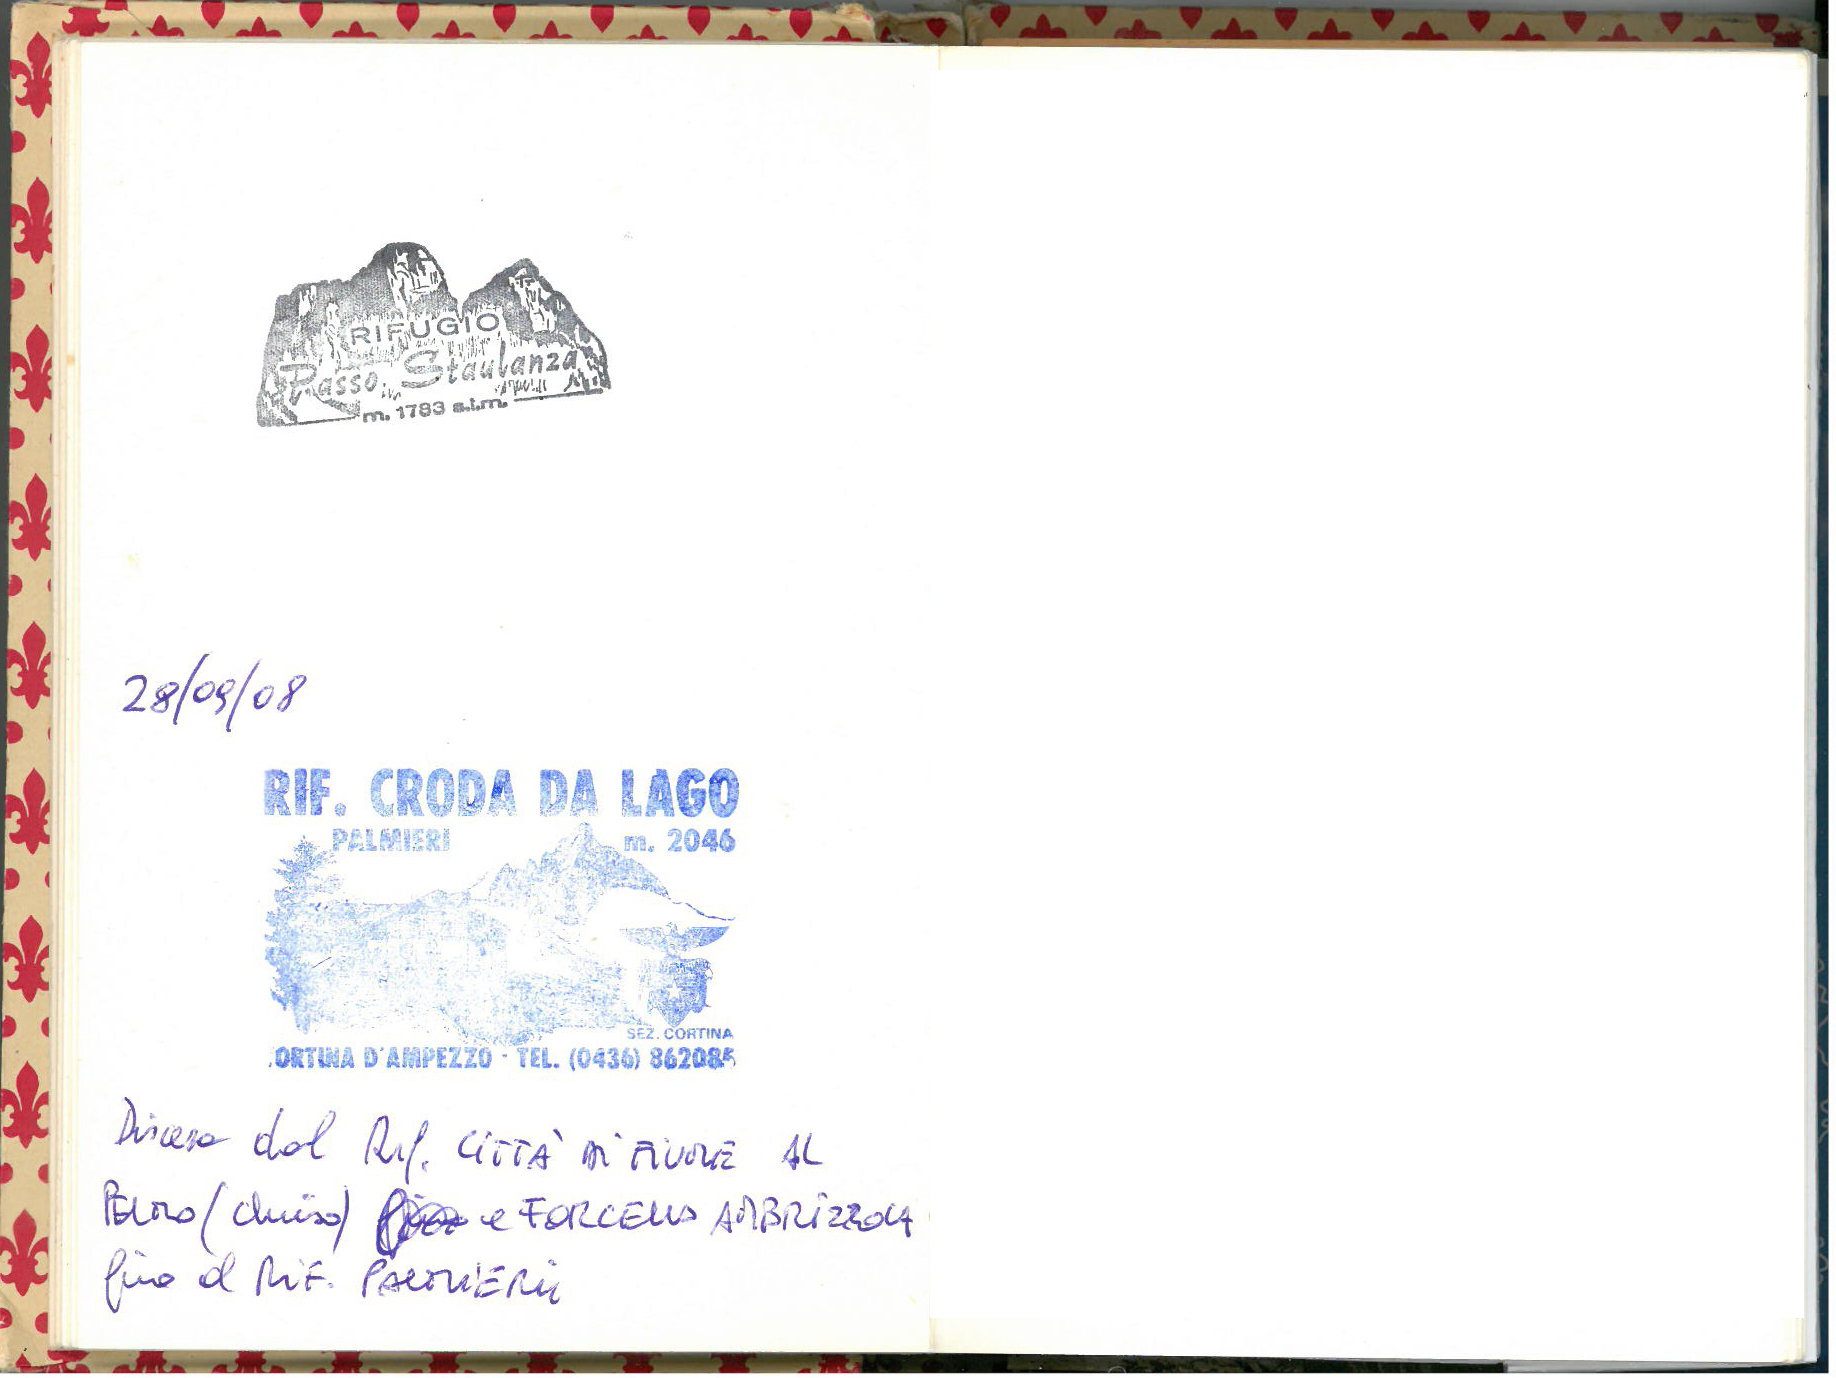 RIFUGIO
Passo Staulanza
m. 1783 s.l.m.
28/09/08
RIF. CRODA DA LAGO
PALMIERI m. 2046
SEZ. CORTINA
ORTINA D'AMPEZZO - TEL. (0436) 862085
Discesa dal Rif. CITTÀ DI FIUME AL
PELMO (chiuso) e FORCELLA AMBRIZZOLA
fino al RIF. PALMIERI